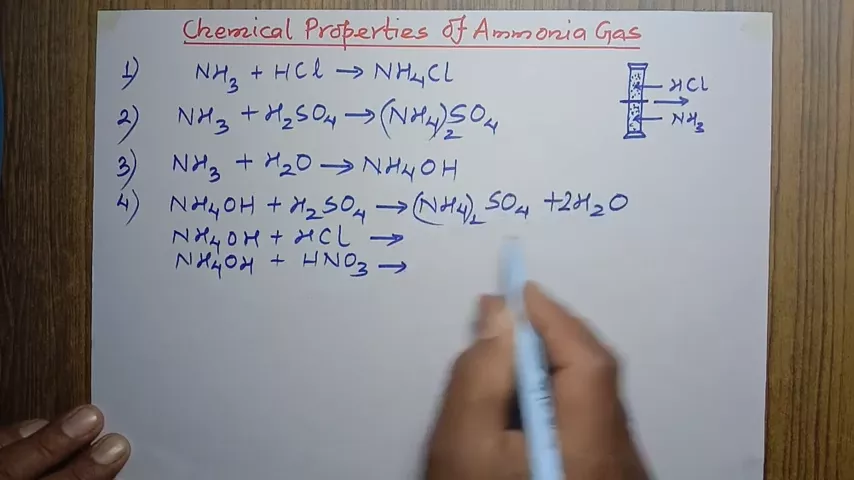 Chemical Properties of Ammonia Gas
1) NH₃ + HCl → NH₄Cl
2) NH₃ + H₂SO₄ → (NH₄)₂SO₄
3) NH₃ + H₂O → NH₄OH
4) NH₄OH + H₂SO₄ → (NH₄)₂SO₄ + 2H₂O
NH₄OH + HCl →
NH₄OH + HNO₃ →
HCl
NH₃